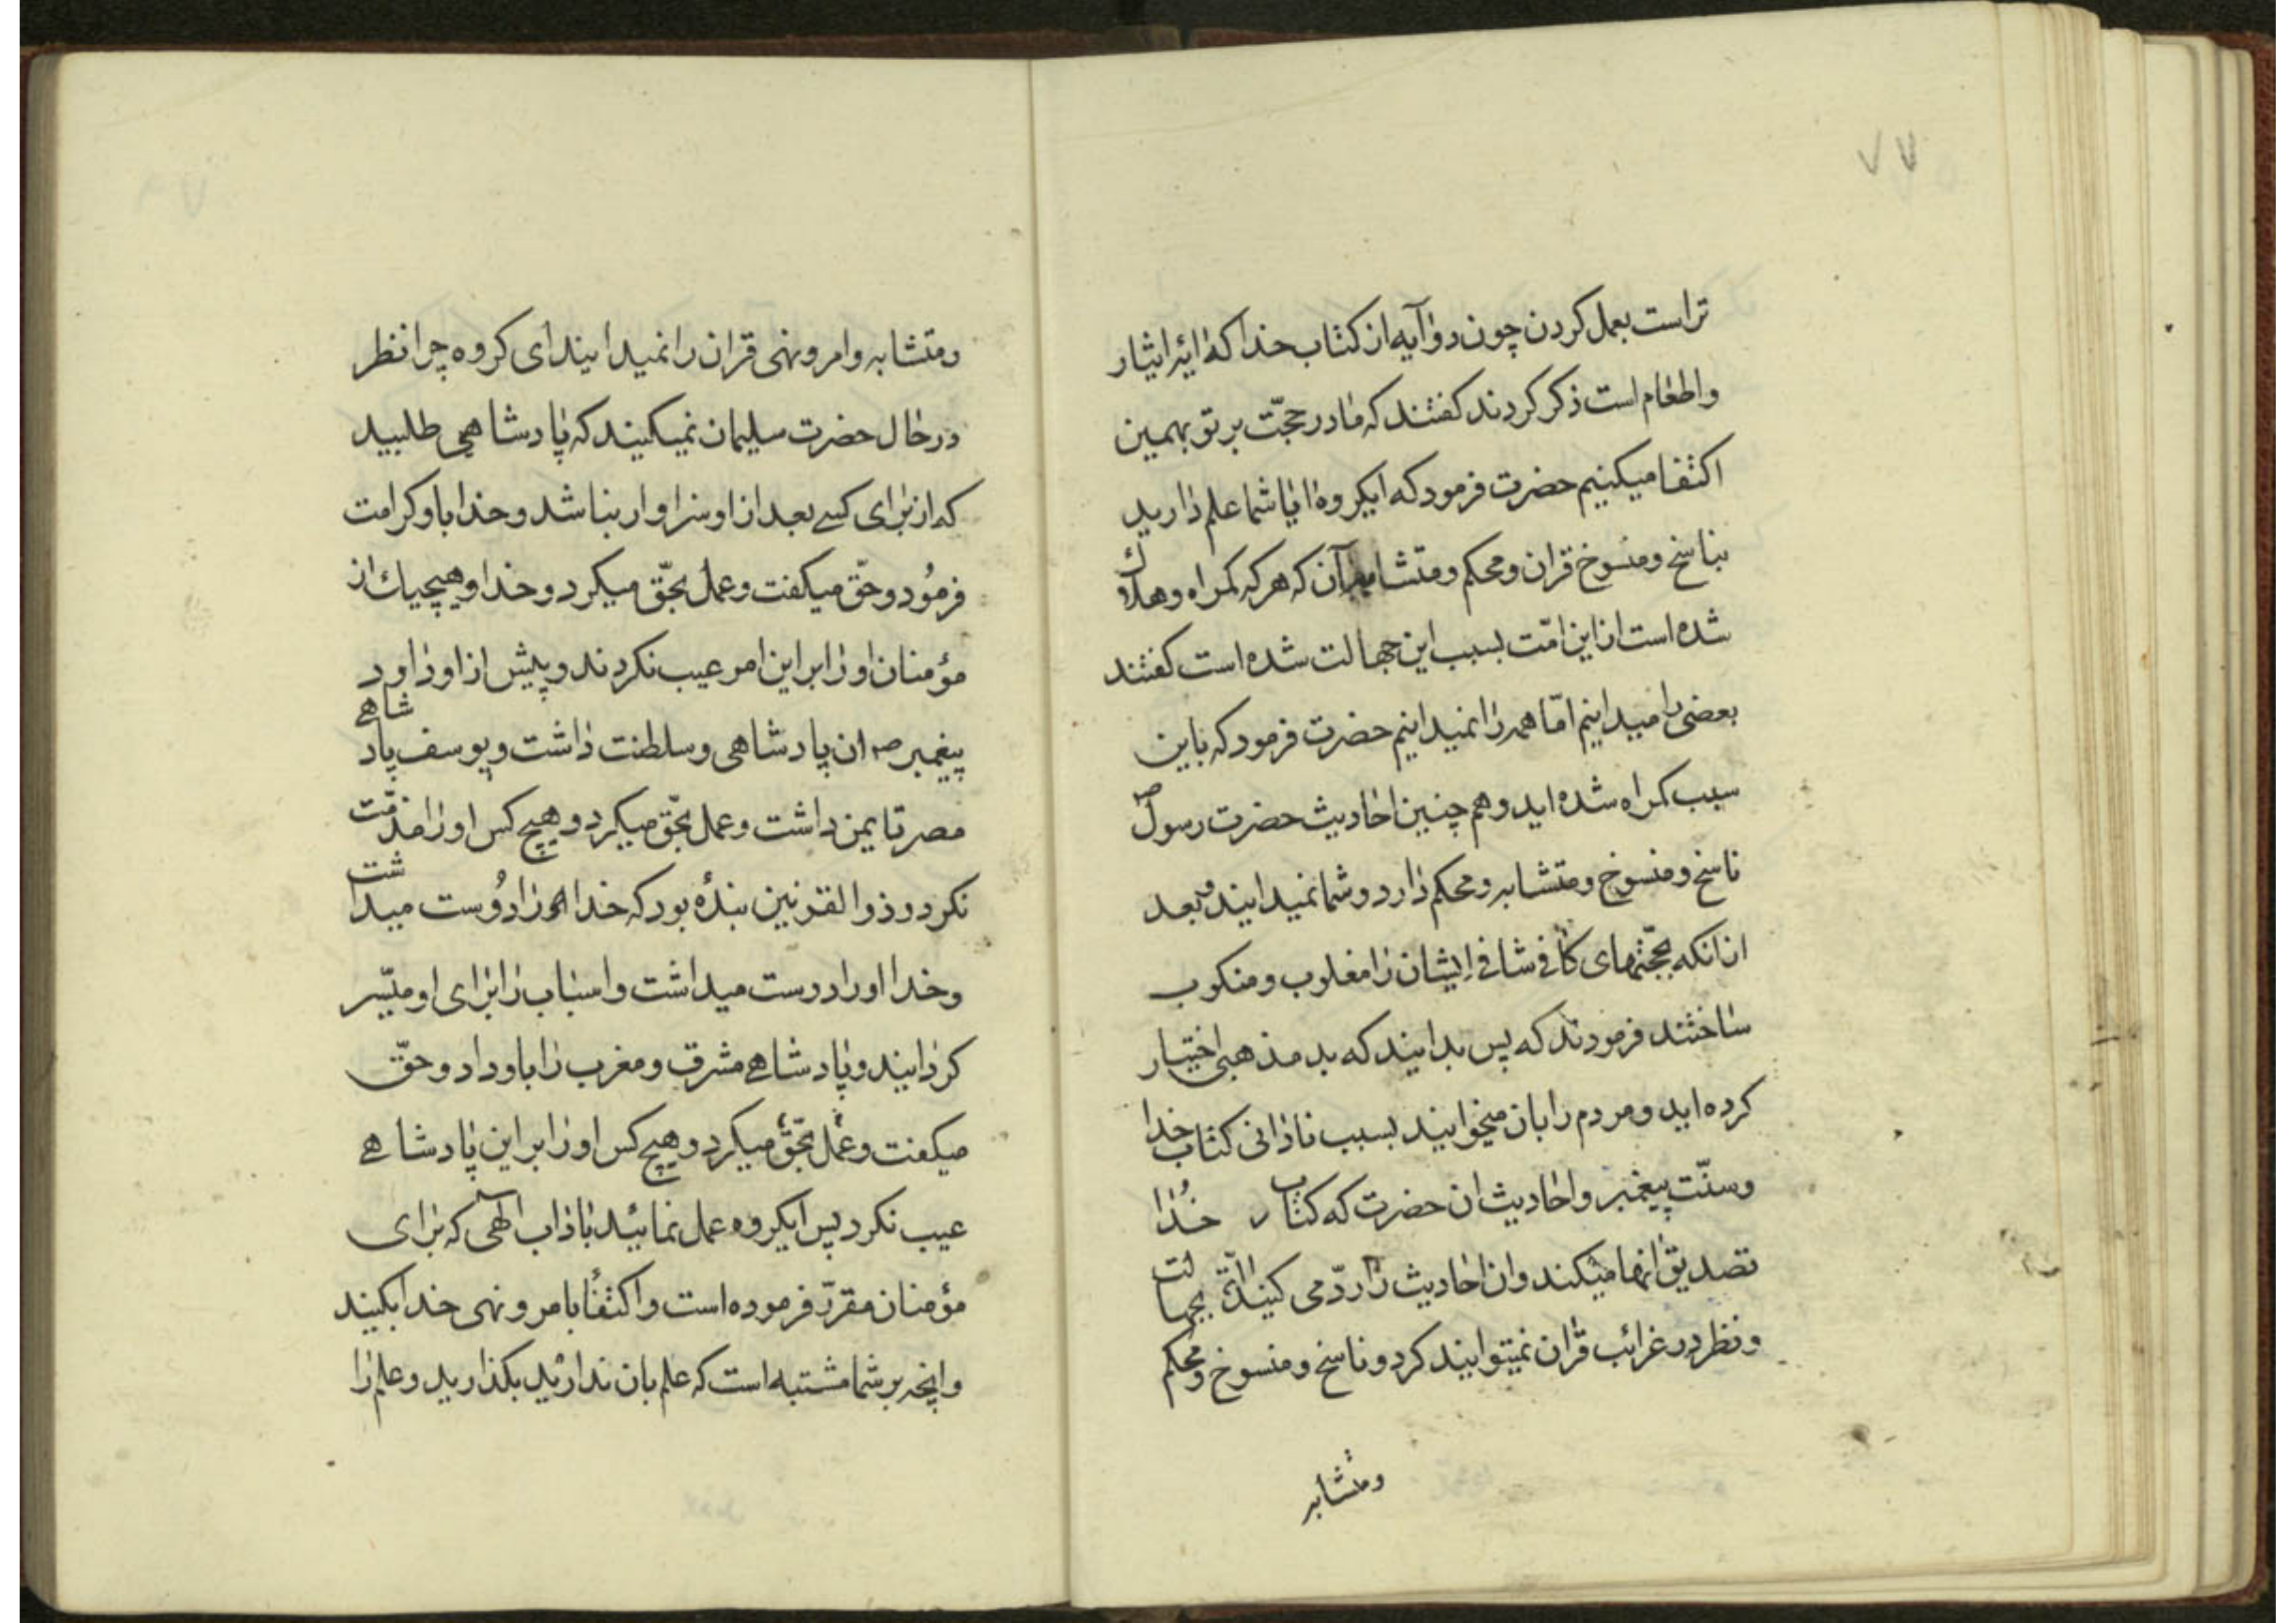 ٧٧
تراست بعمل کردن چون دو آیه از کتاب خدا که ائه ایثار
و اطعام است ذکر کردند کفتند که ما در حجّت بر تو بهمین
اکتفا میکنیم حضرت فرمود که ایکروه ایا شما علم دارید
بناسخ و منسوخ قران و محکم و متشابه آن که هر که کمراه و هلاک
شده است از این امّت بسبب این جهالت شده است کفتند
بعضی را میدانیم امّا همه را نمیدانیم حضرت فرمود که باین
سبب کمراه شده اید و هم چنین احادیث حضرت رسول ص
ناسخ و منسوخ و متشابه و محکم دارد و شما نمیدانید و بعد
از انکه بحجّتهای کافی شافی ایشان را مغلوب و منکوب
ساختند فرمودند که پس بدانید که بد مذهبی اختیار
کرده اید و مردم را بان میخوانید بسبب نادانی کتاب خدا
و سنّت پیغمبر و احادیث ان حضرت که کتاب خدا
تصدیق انها میکند و ان احادیث را ردّ می کنید بجهالت
و نظر در غرائب قران نمیتوانید کرد و ناسخ و منسوخ و محکم
و متشابه
و متشابه و امر و نهی قران را نمیدانید ای کروه چرا نظر
در حال حضرت سلیمان نمیکنید که پادشاهی طلبید
که از برای کسی بعد از او سزاوار نباشد و خدا باو کرامت
فرمُود و حقّ میکفت و عمل بحقّ میکرد و خدا و هیچیك از
مؤمنان او را بر این امر عیب نکردند و پیش از او داود
پیغمبر ص ان پادشاهی و سلطنت داشت و یوسف پادشاهی
مصر تا یمن داشت و عمل بحقّ میکرد و هیچ کس او را مذمّت
نکرد و ذوالقرنین بندۀ بود که خدا را دوُست میداشت
و خدا او را دوست میداشت و اسباب را برای او میّسر
کردانید و پادشاهی مشرق و مغرب را باو داد و حقّ
میکفت و عمل بحقّ میکرد و هیچ کس او را بر این پادشاهی
عیب نکرد پس ایکروه عمل نمائید باداب الهی که برای
مؤمنان مقرّر فرموده است و اکتفا بامر و نهی خدا بکنید
و انچه بر شما مشتبه است که علم بان ندارید بکذارید و علم را